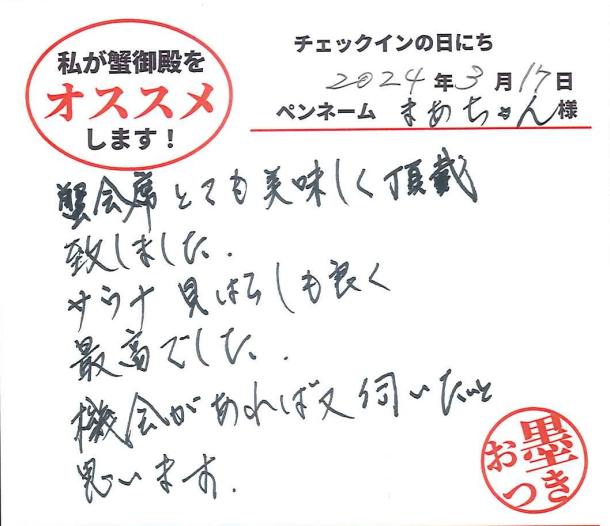 私が蟹御殿を
オススメ
します！
チェックインの日にち
2024年3月17日
ペンネーム まあちゃん様
蟹会席とても美味しく頂戴
致しました.
サウナ見はらしも良く
最高でした.
機会があれば又伺いたいと
思います.
お墨
つき